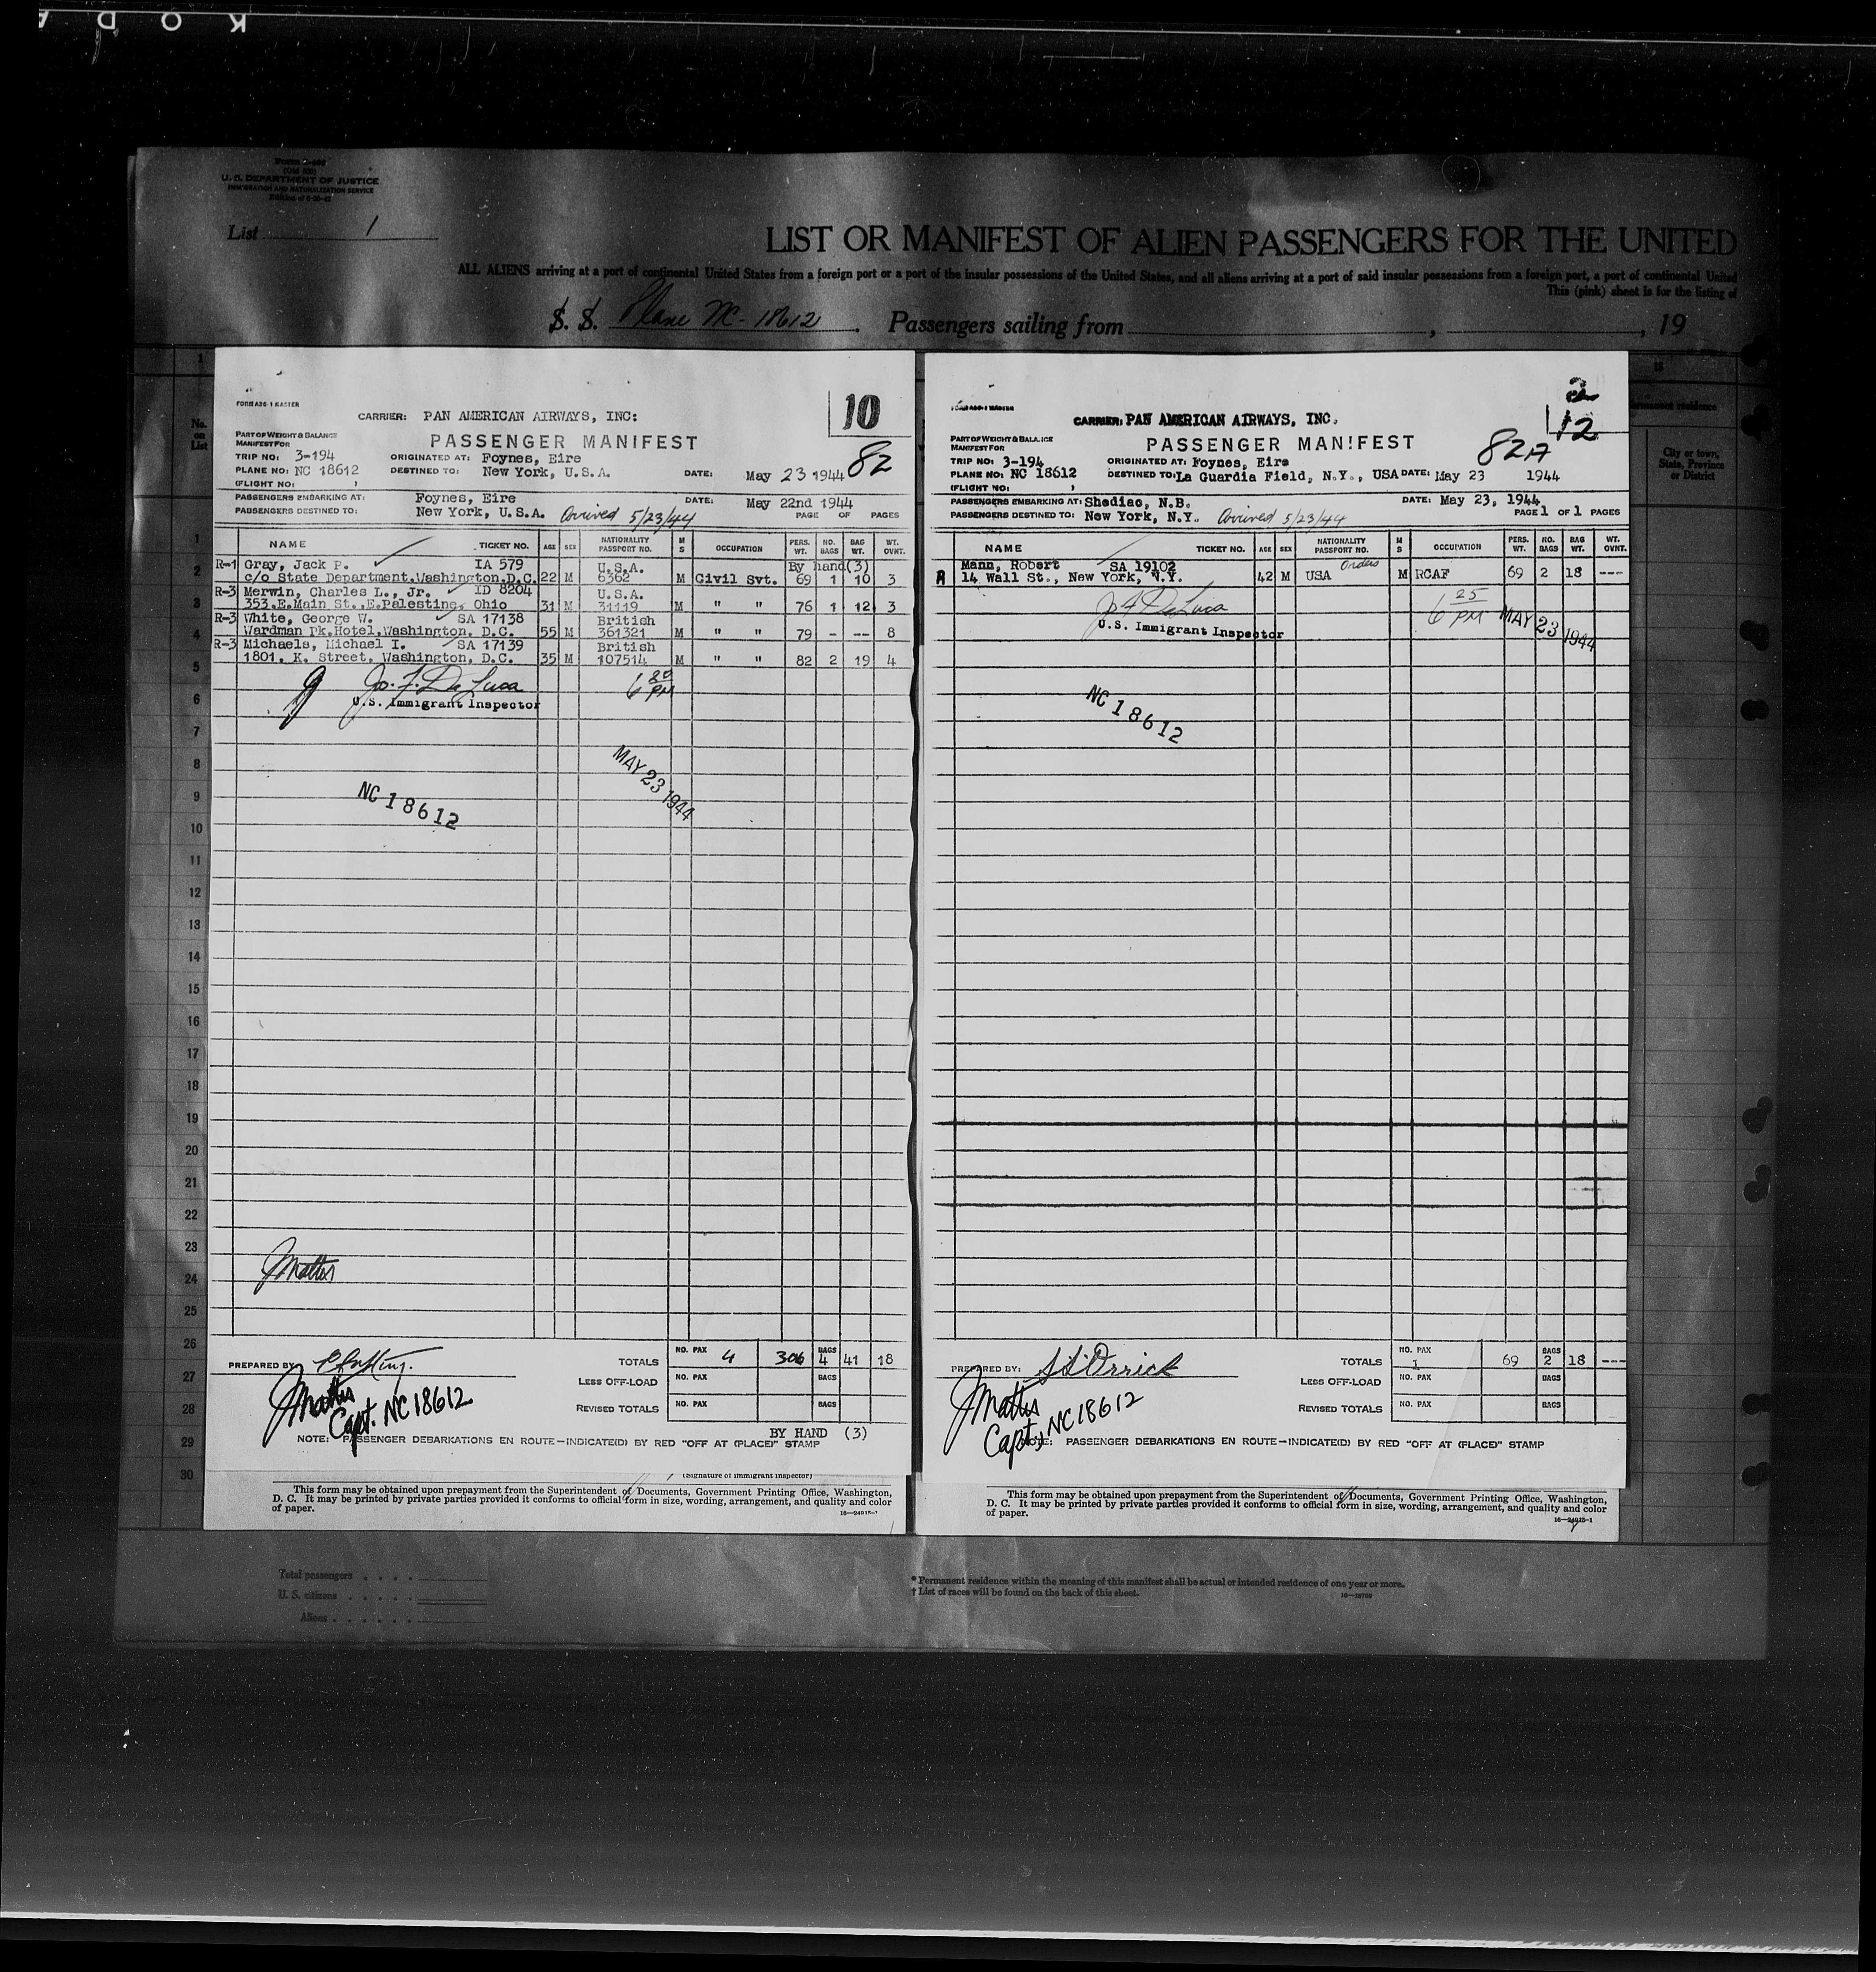 KODA
U. S. DEPARTMENT OF JUSTICE
IMMIGRATION AND NATURALIZATION SERVICE
List 1
LIST OR MANIFEST OF ALIEN PASSENGERS FOR THE UNITED
ALL ALIENS arriving at a port of continental United States from a foreign port or a port of the insular possessions of the United States, and all aliens arriving at a port of said insular possessions from a foreign port, a port of continental United
This (pink) sheet is for the listing of
S. S. Plane NC-18612. Passengers sailing from , , 19
No. on List
10
CARRIER: PAN AMERICAN AIRWAYS, INC:
PASSENGER MANIFEST
82
PART OF WEIGHT & BALANCE
MANIFEST FOR
TRIP NO: 3-194 ORIGINATED AT: Foynes, Eire
PLANE NO: NC 18612 DESTINED TO: New York, U.S.A. DATE: May 23 1944
(FLIGHT NO: )
PASSENGERS EMBARKING AT: Foynes, Eire DATE: May 22nd 1944
PASSENGERS DESTINED TO: New York, U.S.A. Arrived 5/23/44 PAGE OF PAGES
NAME TICKET NO. AGE SEX NATIONALITY PASSPORT NO. M S OCCUPATION PERS. WT. NO. BAGS BAG WT. WT. OVNT.
R-1 Gray, Jack P. IA 579 U.S.A. By hand(3)
c/o State Department.Washington.D.C. 22 M 6362 M Civil Svt. 69 1 10 3
R-3 Merwin, Charles L., Jr. ID 8204 U.S.A.
353.E.Main St..E.Palestine, Ohio 31 M 31119 M " " 76 1 12 3
R-3 White, George W. SA 17138 British
Wardman Pk.Hotel.Washington. D.C. 55 M 361321 M " " 79 - -- 8
R-3 Michaels, Michael I. SA 17139 British
1801. K. Street. Washington, D.C. 35 M 107514 M " " 82 2 19 4
Jo. F. De Luca
U.S. Immigrant Inspector
PM
MAY 23 1944
NC 18612
1
2
3
4
5
6
7
8
9
10
11
12
13
14
15
16
17
18
19
20
21
22
23
24
25
26
27
28
29
30
PREPARED BY:
TOTALS NO. PAX 4 306 BAGS 4 41 18
LESS OFF-LOAD NO. PAX BAGS
REVISED TOTALS NO. PAX BAGS
Capt. NC18612
BY HAND (3)
NOTE: PASSENGER DEBARKATIONS EN ROUTE—INDICATE(D) BY RED "OFF AT (PLACE)" STAMP
(Signature of Immigrant Inspector)
This form may be obtained upon prepayment from the Superintendent of Documents, Government Printing Office, Washington,
D. C. It may be printed by private parties provided it conforms to official form in size, wording, arrangement, and quality and color
of paper.
2
12
CARRIER: PAN AMERICAN AIRWAYS, INC.
PASSENGER MANIFEST
82A
PART OF WEIGHT & BALANCE
MANIFEST FOR
TRIP NO: 3-194 ORIGINATED AT: Foynes, Eire
PLANE NO: NC 18612 DESTINED TO: La Guardia Field, N.Y., USA DATE: May 23 1944
(FLIGHT NO: )
PASSENGERS EMBARKING AT: Shediac, N.B. DATE: May 23, 1944
PASSENGERS DESTINED TO: New York, N.Y. Arrived 5/23/44 PAGE 1 OF 1 PAGES
NAME TICKET NO. AGE SEX NATIONALITY PASSPORT NO. M S OCCUPATION PERS. WT. NO. BAGS BAG WT. WT. OVNT.
Mann, Robert SA 19102 Orders
A 14 Wall St., New York, N.Y. 42 M USA M RCAF 69 2 18 ---
U.S. Immigrant Inspector
6 25 PM MAY 23 1944
NC 18612
PREPARED BY:
TOTALS NO. PAX 1 69 BAGS 2 18 ---
LESS OFF-LOAD NO. PAX BAGS
REVISED TOTALS NO. PAX BAGS
Capt, NC18612
NOTE: PASSENGER DEBARKATIONS EN ROUTE—INDICATE(D) BY RED "OFF AT (PLACE)" STAMP
This form may be obtained upon prepayment from the Superintendent of Documents, Government Printing Office, Washington,
D. C. It may be printed by private parties provided it conforms to official form in size, wording, arrangement, and quality and color
of paper.
15
permanent residence
City or town, State, Province or District
Total passengers
U. S. citizens
Aliens
* Permanent residence within the meaning of this manifest shall be actual or intended residence of one year or more.
† List of races will be found on the back of this sheet.